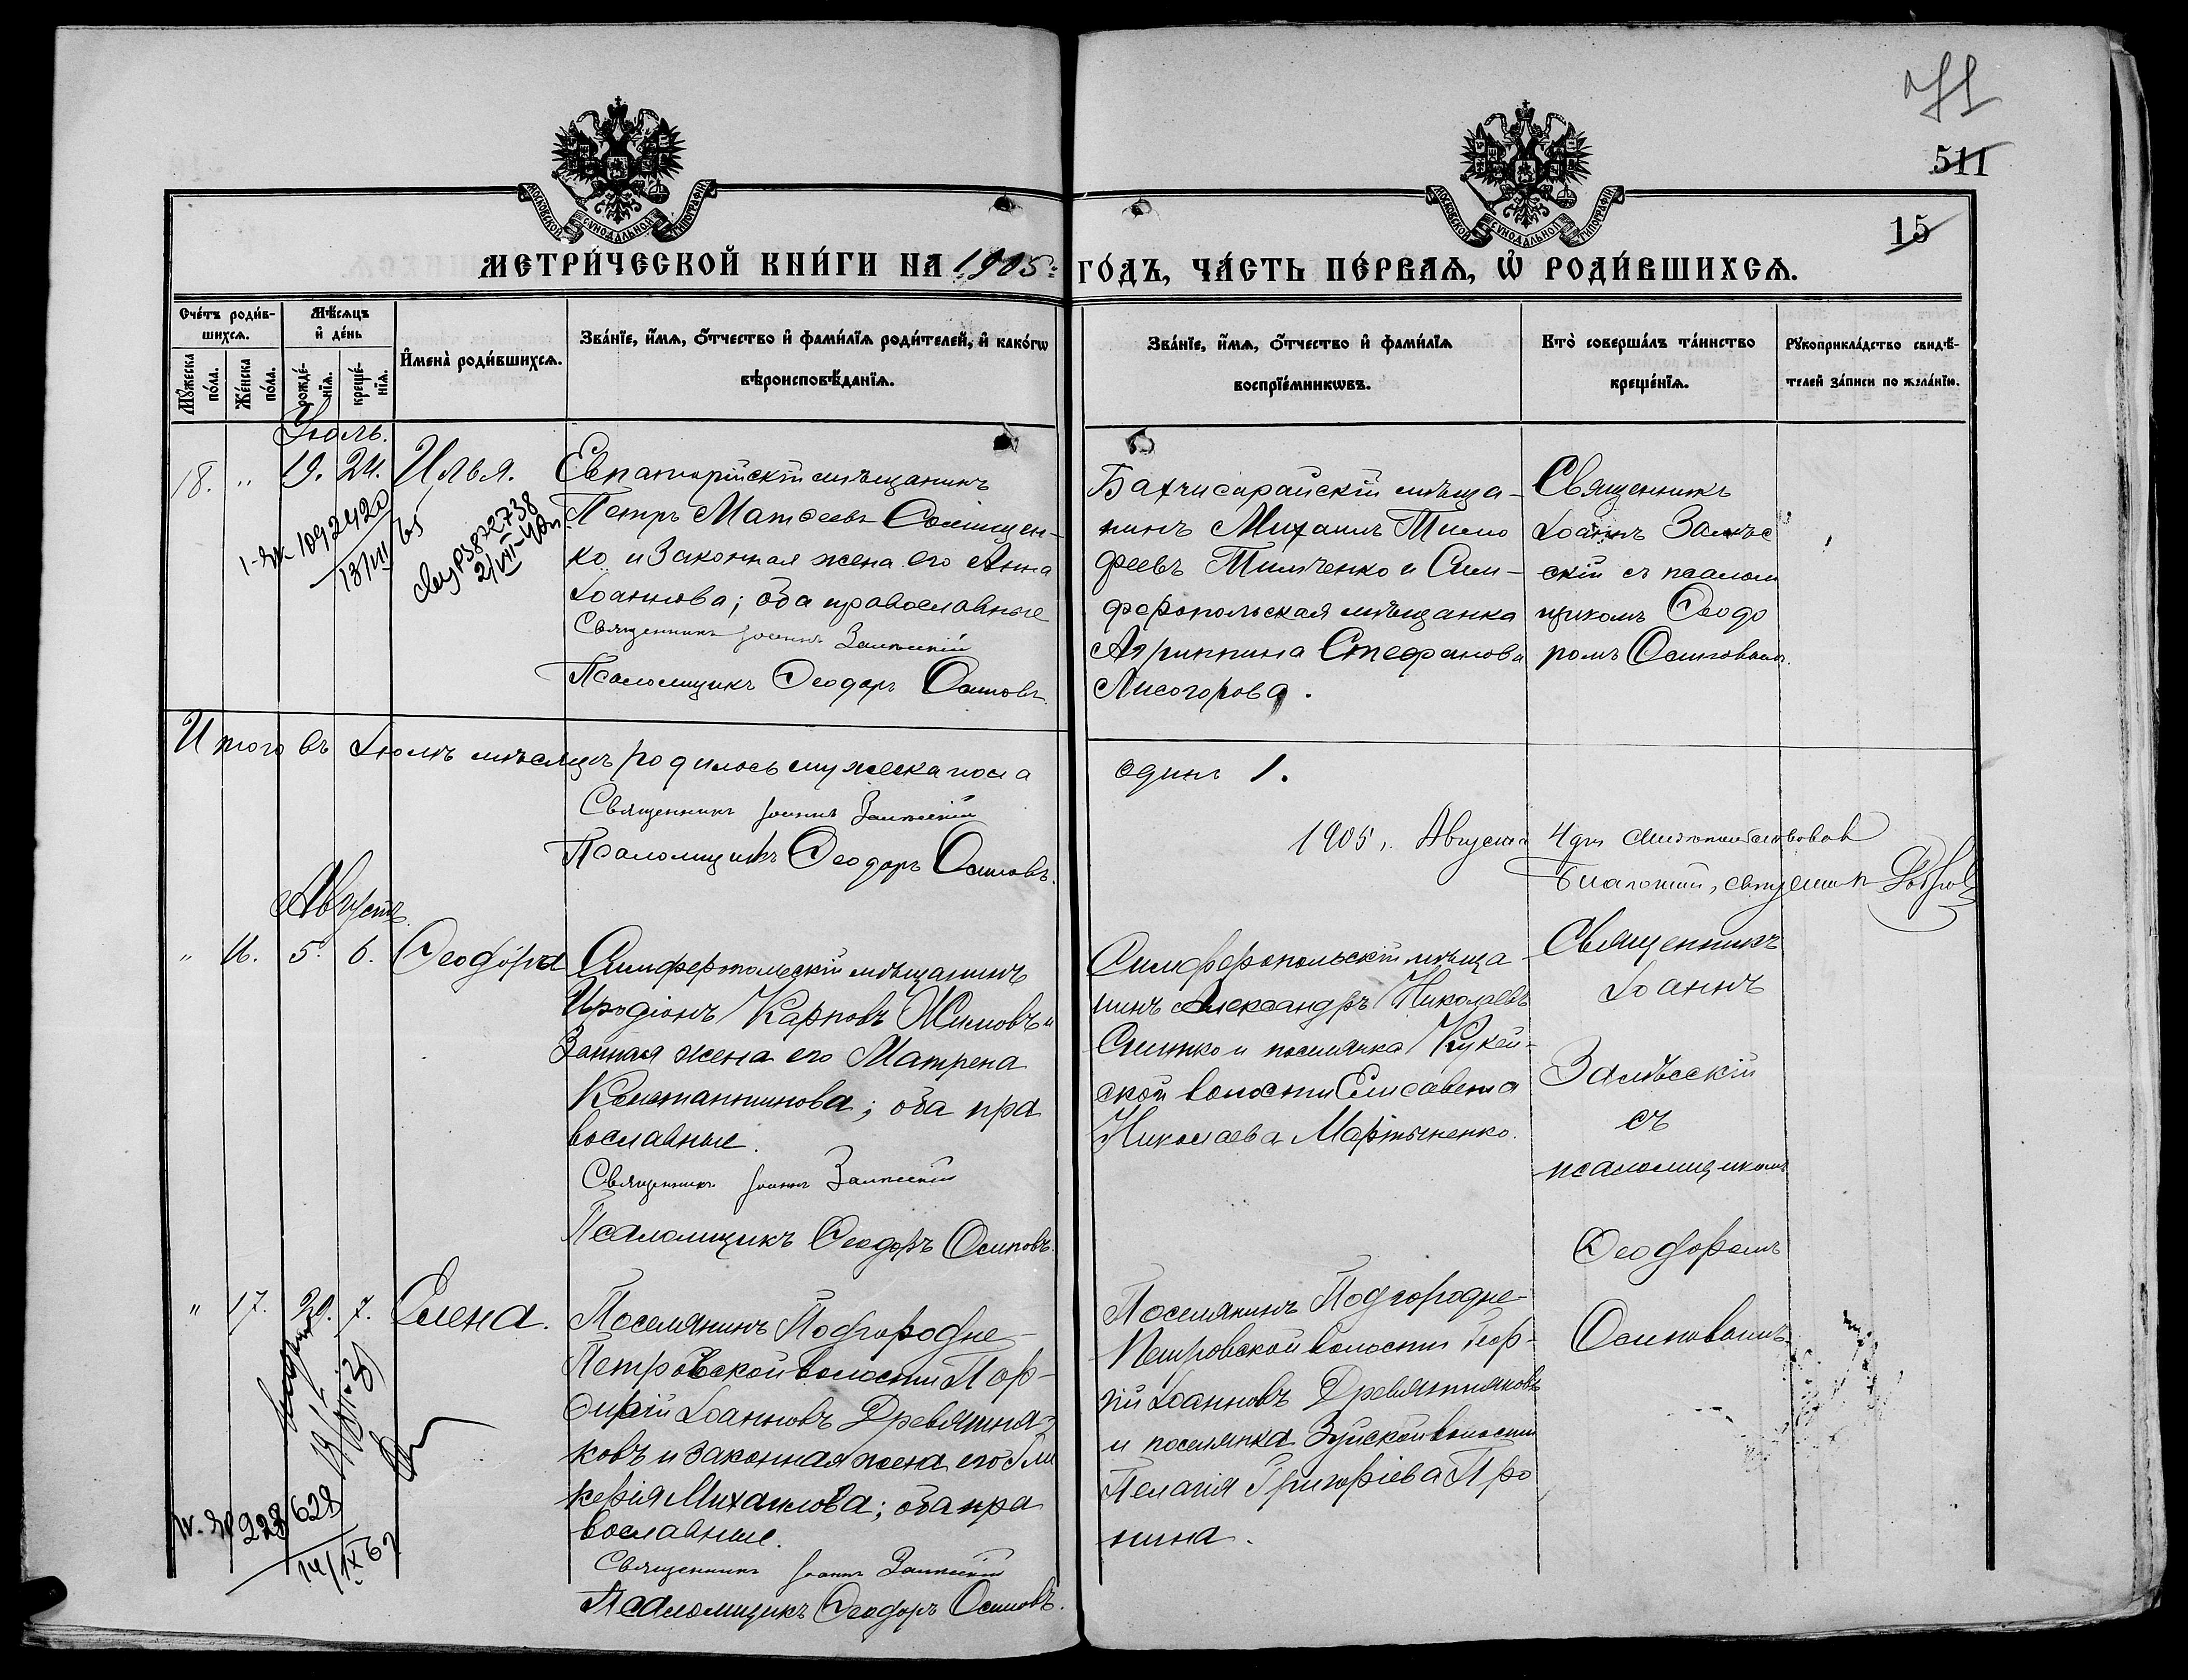 511
15
МОСКОВСКОЙ СУНОДАЛЬНОЙ ТИПОГРАФІИ
МОСКОВСКОЙ СУНОДАЛЬНОЙ ТИПОГРАФІИ
МЕТРИ́ЧЕСКОЙ КНИ́ГИ НА 1905
ГО́ДЪ, ЧА́СТЬ ПЕ́РВАѦ, Ѽ РОДИ́ВШИХСѦ.
Сче́тъ роди́в-
шихсѧ.
Мꙋ́жеска по́ла.
Же́нска по́ла.
Мѣ́сѧцъ
и҆ де́нь
рожде́-
нїѧ.
креще́-
нїѧ.
И҆мена̀ роди́вшихсѧ.
Зва́нїе, и҆́мѧ, ѻ҆́тчество и҆ фами́лїѧ роди́телей, и҆ како́гѡ
вѣроисповѣ́данїѧ.
Зва́нїе, и҆́мѧ, ѻ҆́тчество и҆ фами́лїѧ
воспрїе́мникѡвъ.
Кто̀ соверша́лъ та́инство
креще́нїѧ.
Рꙋкоприкла́дство свидѣ́-
телей за́писи по жела́нїю.
Іюль.
18. " 19. 24. Илья.
Евпаторійскій мѣщанинъ
Петръ Матѳеевъ
ко и законная жена его Анна
Іоаннова; оба православные
Священникъ Іоаннъ Залѣсскій
Псаломщикъ Ѳеодоръ Осиповъ.
Бахчисарайскій мѣща-
нинъ Михаилъ Тимо
феевъ Тимченко и Сим-
феропольская мѣщанка
Агриппина Стефанова
Лисогорова.
Священникъ
Іоаннъ Залѣс
скій съ псалом
щикомъ Ѳеодо
ромъ Осиповымъ.
Итого въ Іюлѣ мѣсяцѣ родилось мужеска пола
одинъ 1.
Священникъ Іоаннъ Залѣсскій
Псаломщикъ Ѳеодоръ Осиповъ.
1905, Августа 4 дня
Августъ.
" 16. 5. 6. Ѳеодора
Симферопольскій мѣщанинъ
Иродіонъ Карповъ Климовъ и
Законная жена его Матрена
Константинова; оба пра
вославные.
Священникъ Іоаннъ Залѣсскій
Псаломщикъ Ѳеодоръ Осиповъ.
Симферопольскій мѣща
нинъ Александръ Николаевъ
Снитко и поселянка
ской волости Елисавета
Николаева Мартыненко.
Священникъ
Іоаннъ
Залѣсскій
съ
псаломщикомъ
Ѳеодоромъ
Осиповымъ
" 17. 29. 7. Елена.
Поселянинъ Подгородне-
Петровской волости Пор-
фирій Іоанновъ Древятня-
ковъ и законная жена его Гли
керія Михаилова; оба пра
вославные.
Священникъ Іоаннъ Залѣсскій
Псаломщикъ Ѳеодоръ Осиповъ.
Поселянинъ Подгородне-
Петровской волости Геор-
гій Іоанновъ Древятняковъ
и поселянка Зуйской волости
Пелагія Григоріева Про
нина.